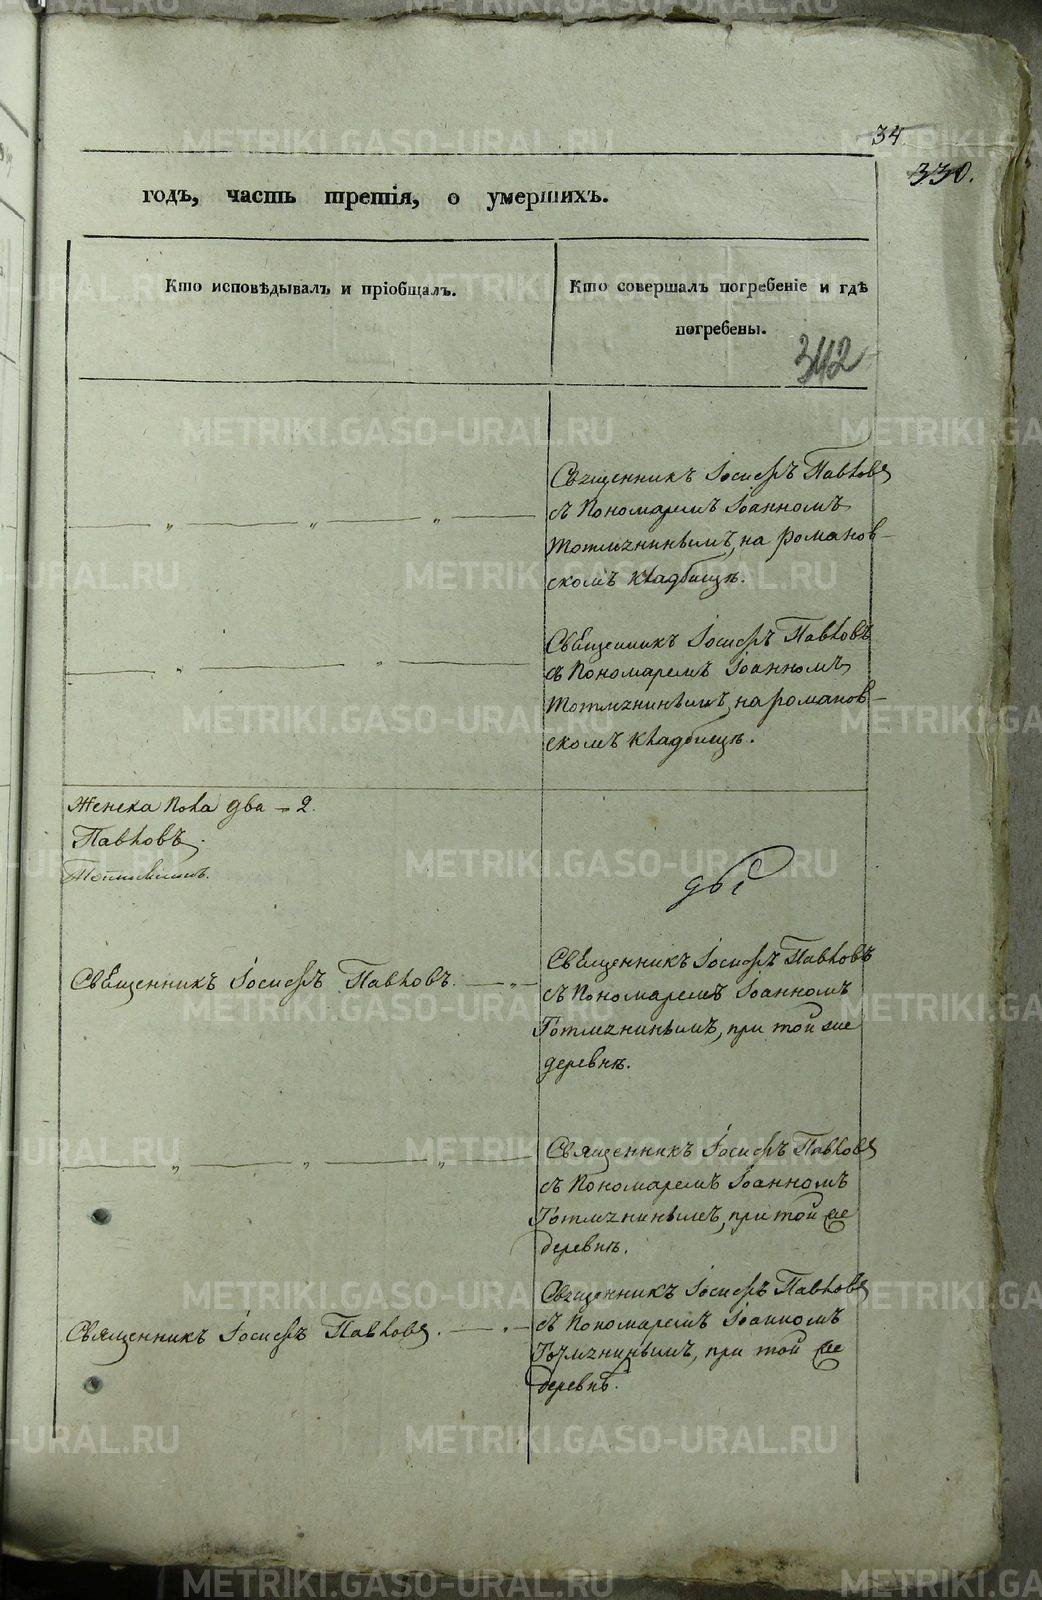 34
330.
годъ, часть третія, о умершихъ.
Кто исповѣдывалъ и пріобщалъ.
Кто совершалъ погребеніе и гдѣ
погребены.
342
Священникъ Іосифъ Павловъ
съ Пономаремъ Іоанномъ
на романов-
скомъ кладбищѣ.
Священникъ Іосифъ Павловъ
съ Пономаремъ Іоанномъ
на романов-
скомъ кладбищѣ.
Женска пола два - 2.
Павловъ.
Священникъ Іосифъ Павловъ.
Священникъ Іосифъ Павловъ
съ Пономаремъ Іоанномъ
при той же
деревнѣ.
Священникъ Іосифъ Павловъ
съ Пономаремъ Іоанномъ
при той же
деревнѣ.
Священникъ Іосифъ Павловъ.
Священникъ Іосифъ Павловъ
съ Пономаремъ Іоанномъ
при той же
деревнѣ.
METRIKI.GASO-URAL.RU